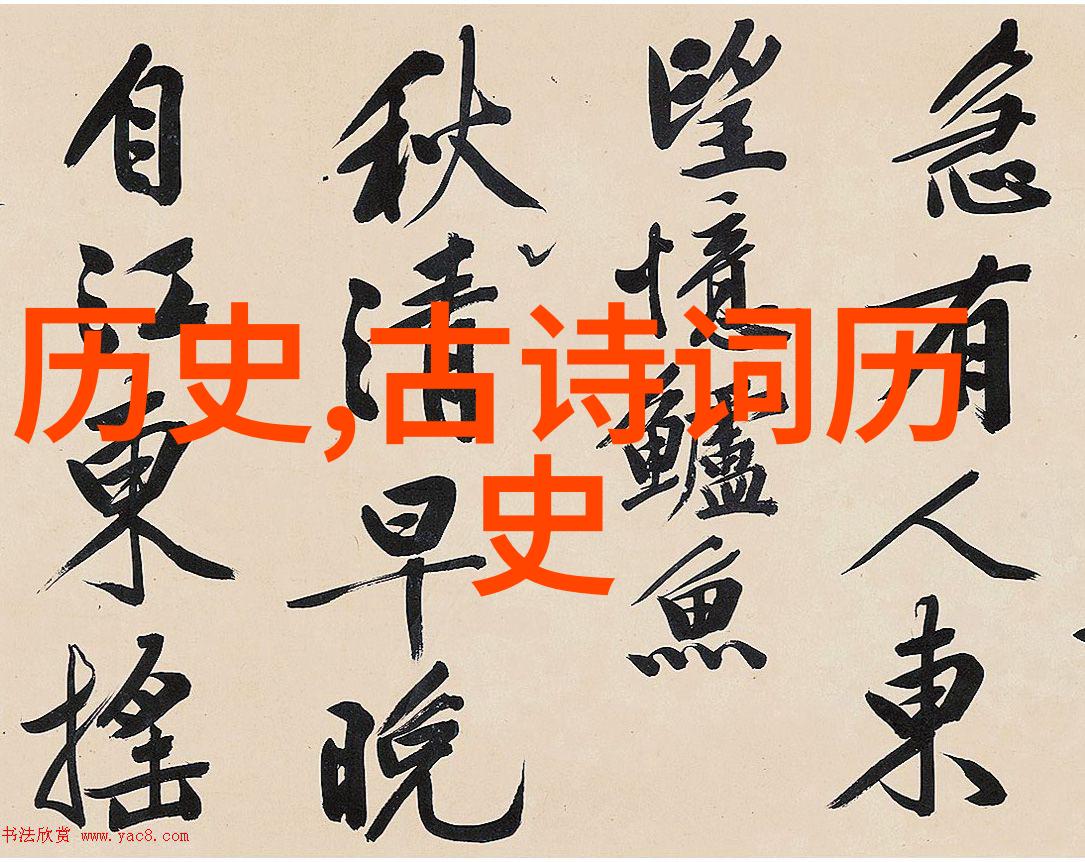 历史,古诗词历
史
急有人東
望憶鱸魚
秋清早晚
自江東搖
书法欣赏 www.yac8.com